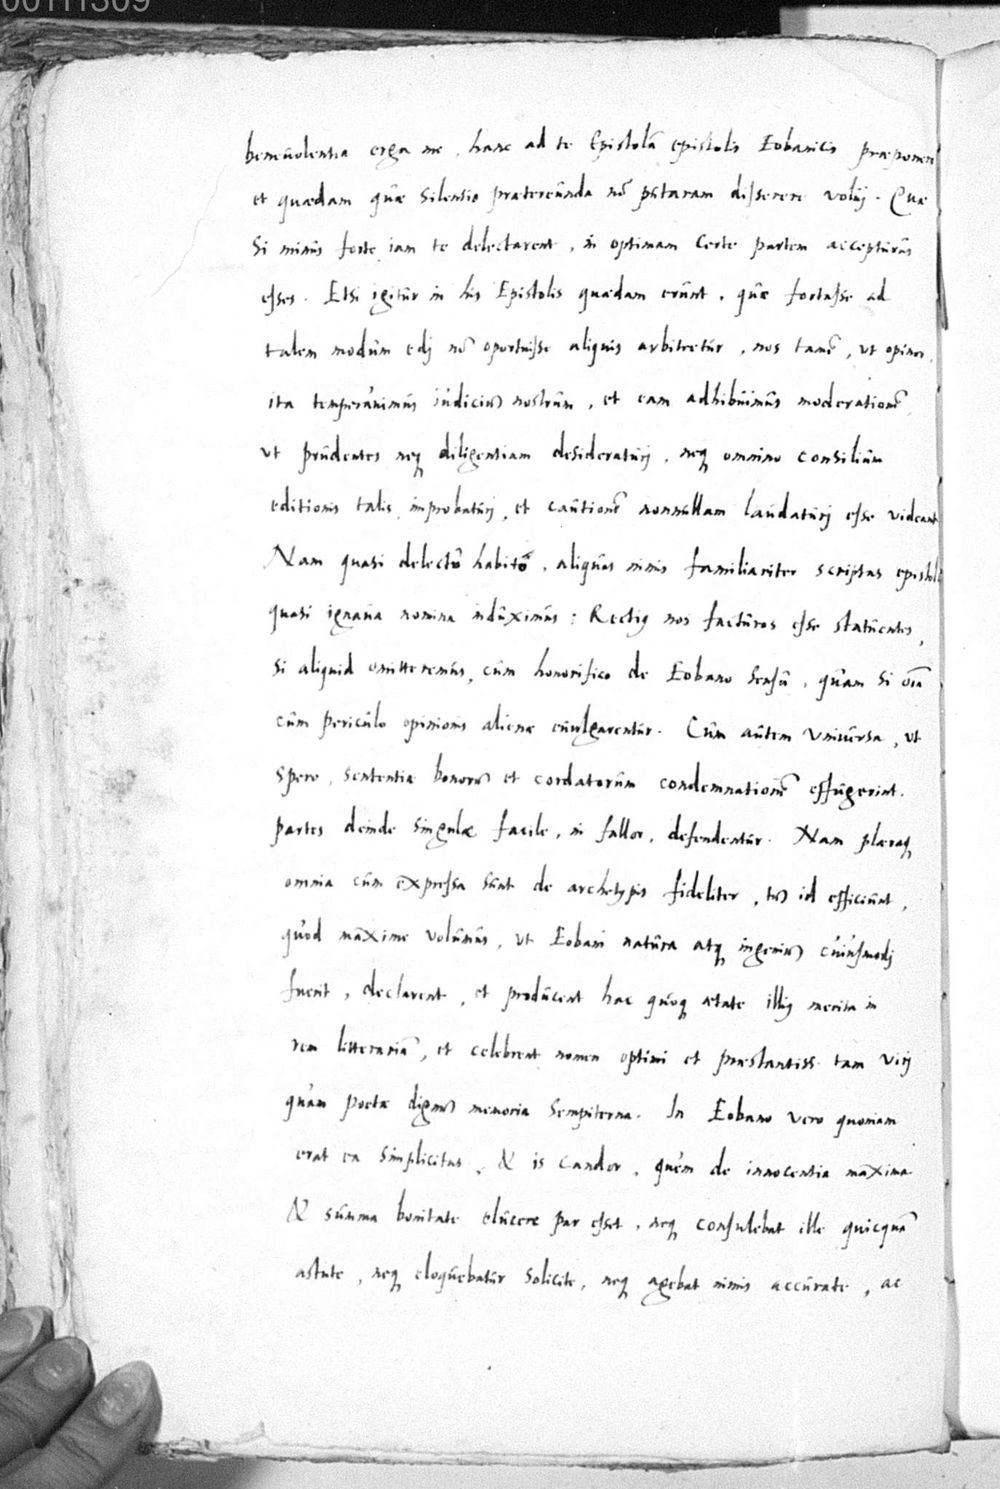 benevolentia erga me, hanc ad te Epistolā epistolis Eobanicis præponere
et quædam quæ silentio prætereunda nō putaram disserere volui. Quæ
si minus forte iam te delectarent, in optimam certe partem accepturus
esses. Etsi igitur in his Epistolis quædam erunt, quæ fortasse ad
talem modum edi nō oportuisse aliquis arbitretur, nos tamē, ut opinor,
ita temperavimus iudiciū nostrum, et eam adhibuimus moderationē,
ut prudentes neq diligentiam desideraturi, neq omnino consilium
editionis talis improbaturi, et cautionē nonnullam laudaturi esse videant
Nam quasi delectu habito, aliquas nimis familiariter scriptas epistol
quasi ignava nomina induximus: Rectiq nos facturos esse statuentes,
si aliquid omitteremus, cum honorifico de Eobano sensu, quam si oīa
cum periculo opinionis alienæ evulgarentur. Cum autem universa, ut
spero, sententia bonorū et cordatorum condemnationē effugerint.
partes deinde singulæ facile, ni fallor, defendentur. Nam pleraq
omnia cum expressa sunt de archetypis fideliter, tū id efficiunt,
quod maxime volumus, ut Eobani natura atq ingeniū cuiusmodi
fuerit, declarent, et producent hac quoq ætate illiq merita in
rem litterariā, et celebrent nomen optimi et præstantiss. tam viri
quam poetæ dignū memoria sempiterna. In Eobano vero quoniam
erat ea simplicitas, & is candor, quem de innocentia maxima
& summa bonitate elucere par esset, neq consulebat ille quicquā
astute, neq eloquebatur solicite, neq agebat nimis accurate, ac